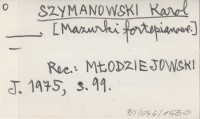 SZYMANOWSKI Karol
[Mazurki fortepianowe.]
Rec.: MŁODZIEJOWSKI
J. 1975, s. 99.